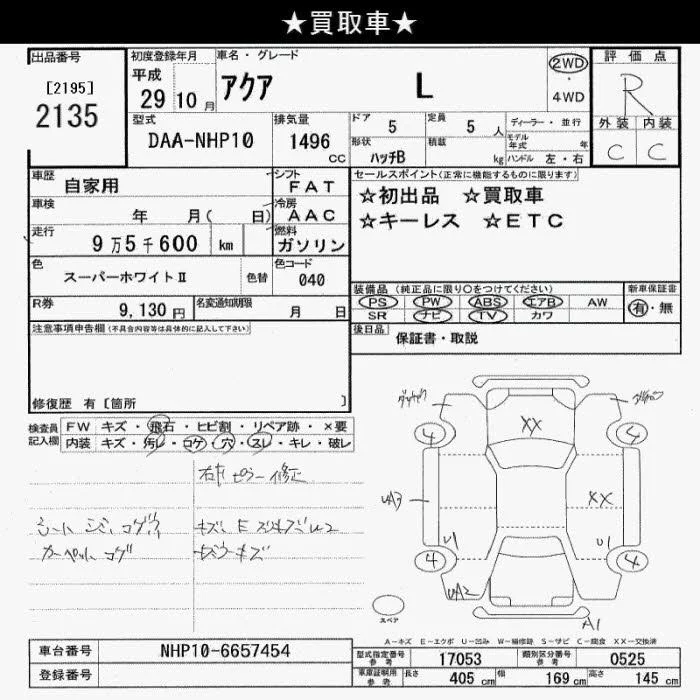 ★買取車★
出品番号
[2195]
2135
初度登録年月
平成
29年10月
車名・グレード
アクア L
2WD
・
4WD
評価点
R
外装 内装
C C
型式
DAA-NHP10
排気量
1496
CC
ドア
5
定員
5 人
形状
ハッチB
積載
kg
ディーラー・並行
モデル年式 年
ハンドル 左・右
車歴
自家用
シフト
FAT
車検
年 月( 日)
冷房
AAC
走行
9万5千600 km
燃料
ガソリン
色
スーパーホワイトⅡ
色替
色コード
040
R券
9,130円
名変通知期限
月 日
セールスポイント(正常に機能するものに限ります)
☆初出品 ☆買取車
☆キーレス ☆ETC
装備品(純正品に限り○をつけてください)
PS PW ABS エアB AW
SR ナビ TV カワ
新車保証書
有・無
後日品
保証書・取説
注意事項申告欄(不具合内容等は具体的に記入して下さい)
修復歴 有〔箇所 〕
検査員記入欄
FW キズ・飛石・ヒビ割・リペア跡・×要
内装 キズ・汚レ・コゲ・穴・スレ・キレ・破レ
ピラー修正
シート コゲ穴
カーペット コゲ
キズ
XX
XX
4
4
4
4
UA3
U1
U1
UA2
A1
スペア
A-キズ E-エクボ U-凹み W-補修跡 S-サビ C-腐食 XX-交換済
車台番号
NHP10-6657454
登録番号
型式指定番号
参考
17053
類別区分番号
参考
0525
車庫証明用
参考
長さ 405 cm
幅 169 cm
高さ 145 cm